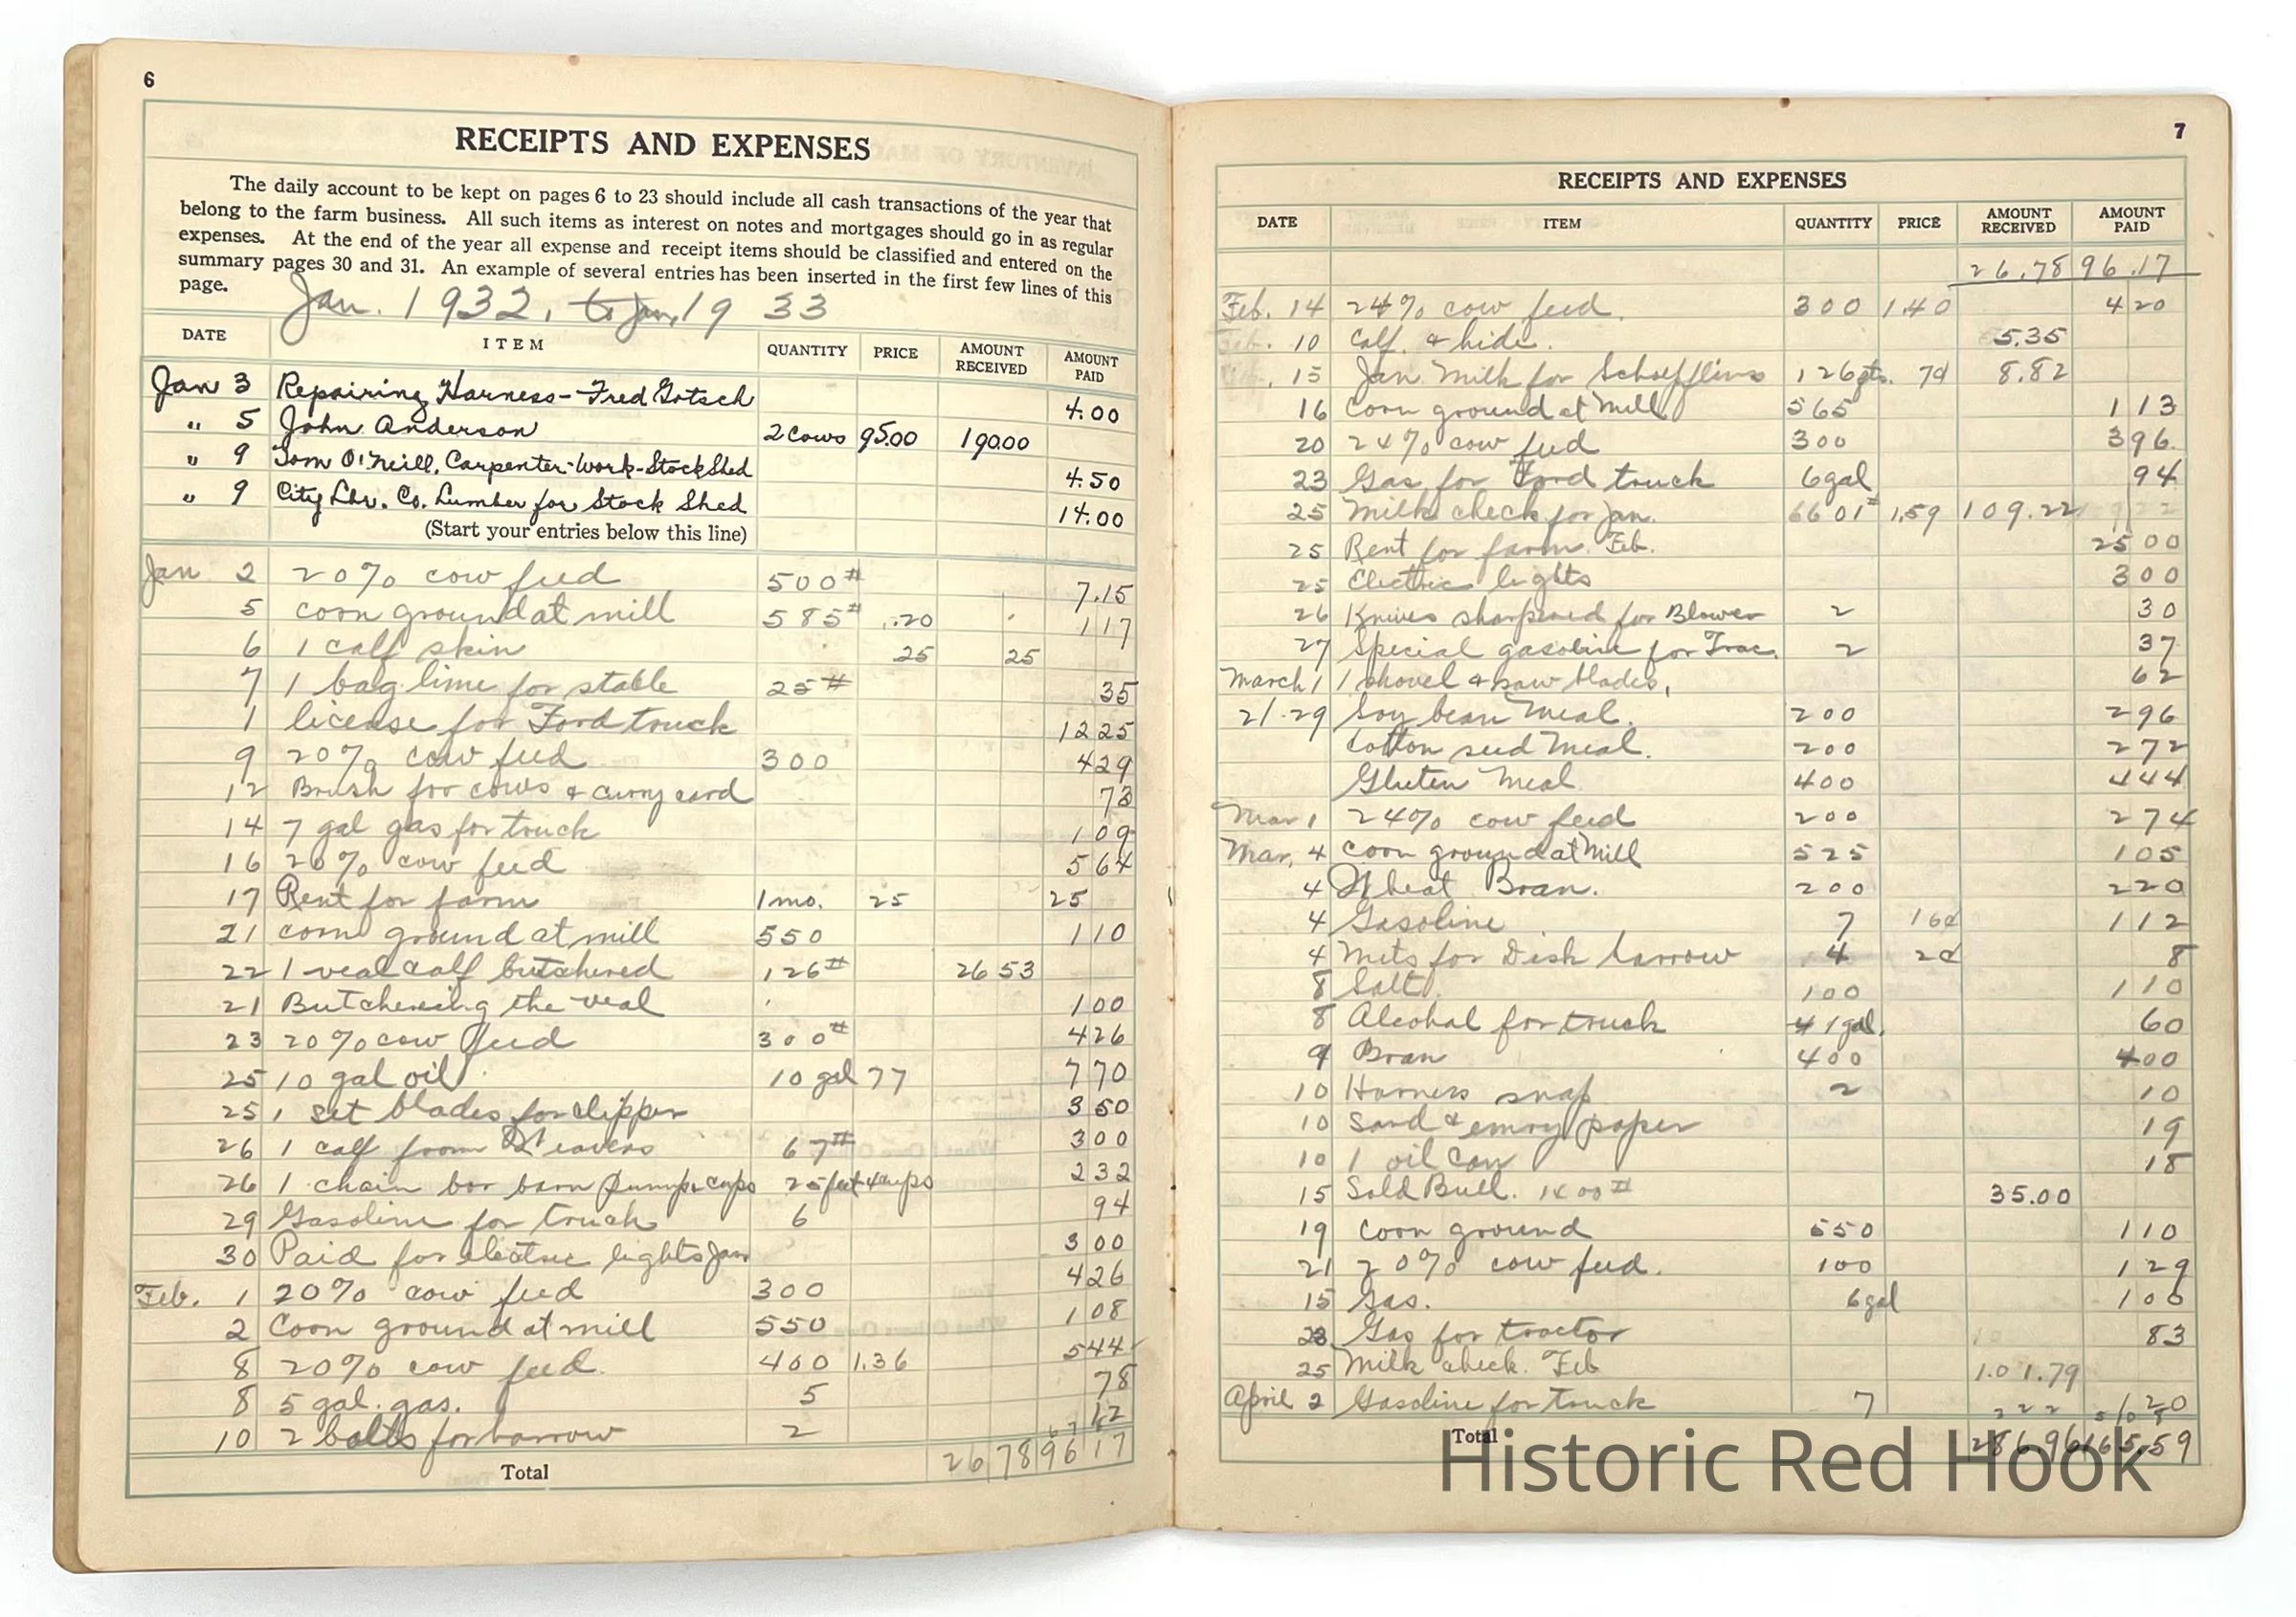 6
RECEIPTS AND EXPENSES
The daily account to be kept on pages 6 to 23 should include all cash transactions of the year that
belong to the farm business. All such items as interest on notes and mortgages should go in as regular
expenses. At the end of the year all expense and receipt items should be classified and entered on the
summary pages 30 and 31. An example of several entries has been inserted in the first few lines of this
page.
Jan. 1 1932, to Jan, 19 33
DATE ITEM QUANTITY PRICE AMOUNT RECEIVED AMOUNT PAID
Jan 3 Repairing Harness - Fred Gotsch 4.00
" 5 John Anderson 2 Cows 95.00 190.00
" 9 Tom O'Neill, Carpenter-Work-Stock Shed 4.50
" 9 City Lbr. Co. Lumber for Stock Shed 14.00
(Start your entries below this line)
Jan 2 20% cow feed 500# 7.15
5 corn ground at mill 585# .20 1 17
6 1 calf skin 25 25
7 1 bag lime for stable 25# 35
1 license for Ford truck 12 25
9 20% cow feed 300 4 29
12 Brush for cows & curry card 73
14 7 gal gas for truck 1 09
16 20% cow feed 5 64
17 Rent for farm 1 mo. 25 25
21 corn ground at mill 550 1 10
22 1 veal calf butchered 126# 26 53
21 Butchering the veal 1 00
23 20% cow feed 300# 4 26
25 10 gal oil 10 gal 77 7 70
25 1 set blades for clipper 3 50
26 1 calf from 67# 3 00
26 1 chain bor barn pump & cups 25 feet 4 cups 2 32
29 Gasoline for truck 6 94
30 Paid for electric lights Jan 3 00
Feb. 1 20% cow feed 300 4 26
2 Corn ground at mill 550 1 08
8 20% cow feed. 400 1.36 5 44
8 5 gal. gas. 5 78
10 2 bolts for harrow 2 12
Total 26 78 96 17
7
RECEIPTS AND EXPENSES
DATE ITEM QUANTITY PRICE AMOUNT RECEIVED AMOUNT PAID
26.78 96.17
Feb. 14 24% cow feed. 300 1.40 4 20
Feb. 10 Calf. & hide. 5.35
15 Jan. Milk for Schefflins 126 qts. 7¢ 8.82
16 Corn ground at Mill 565 1 13
20 24% cow feed 300 3 96
23 Gas for Ford truck 6 gal 94
25 Milk check for Jan. 6601# 1.59 109.22
25 Rent for farm. Feb. 25 00
25 Electric lights 3 00
26 Knives sharpened for Blower 2 30
27 Special gasoline for Trac. 2 37
March 1 1 shovel & saw blades, 62
2/.29 Soy bean Meal. 200 2 96
Cotton seed Meal. 200 2 72
Gluten Meal 400 4 44
Mar 1 24% cow feed 200 2 74
Mar, 4 Corn ground at Mill 525 1 05
4 Wheat Bran. 200 2 20
4 Gasoline 7 16¢ 1 12
4 Nuts for Disk harrow 4 2¢ 8
8 Salt. 100 1 10
8 Alcohal for truck 1 gal. 60
9 Bran 400 4 00
10 Harness snap 2 10
10 Sand & emry paper 19
10 1 oil can 18
15 Sold Bull. 1400# 35.00
19 Corn ground 550 1 10
21 20% cow feed. 100 1 29
15 Gas. 6 gal 1 00
23 Gas for tractor 83
25 Milk check. Feb 101.79
April 2 Gasoline for truck 7 1 20
Total 286.96 165.59
Historic Red Hook